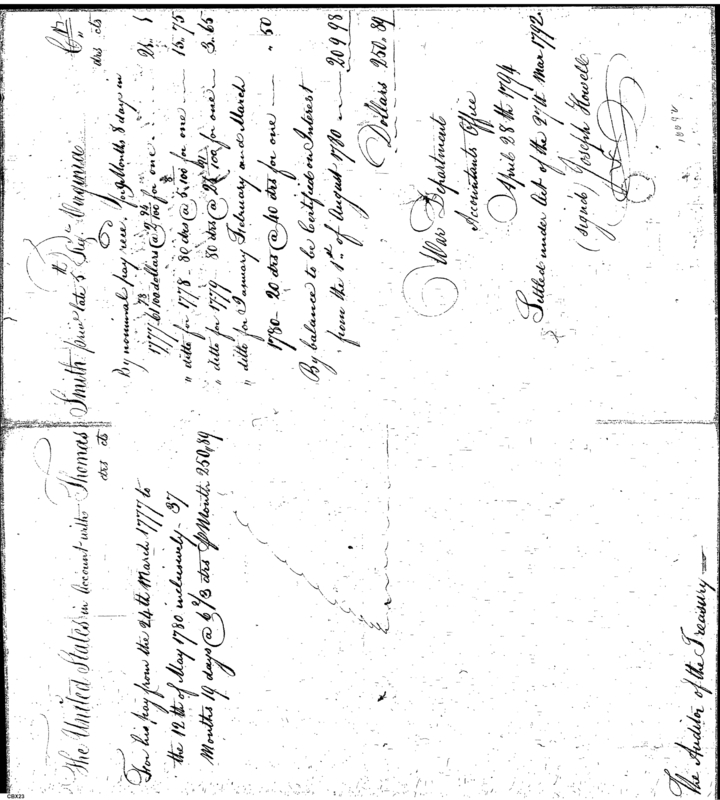 The United States in Account with Thomas Smith priv. late 5th Regt. Virginia Cr.
drs cts
For his pay from the 24th March 1777 to
the 12th of May 1780 inclusively - 37
Months 19 days @ 6 2/3 drs pr Month 250,89
drs cts
By nominal pay recd. for 9 Months 8 days in
1777 61 73/100 dollars @ 2 /100 for one
" ditto for 1778 - 80 drs @ 5, /100 for one — 15.75
" ditto for 1779 80 drs @ /100 for one — 3.65
" ditto for January February and March
1780 - 20 drs @ 40 drs for one — " 50
By balance to be Certified on Interest
from the 1st. of August 1780 — 209 98
Dollars 250.89
War Department
Accountants Office
April 28th 1794
Settled under act of the 27th Mar 1792.
(signd) Joseph Howell
The Auditor of the Treasury —
CBX23